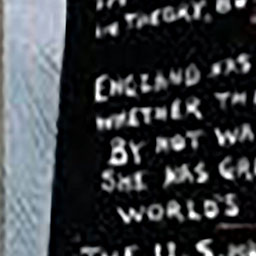 IN THEORY, BU
ENGLAND HAS
WHETHER TH
BY NOT WA
SHE HAS GR
WORLD'S
THE U.S.